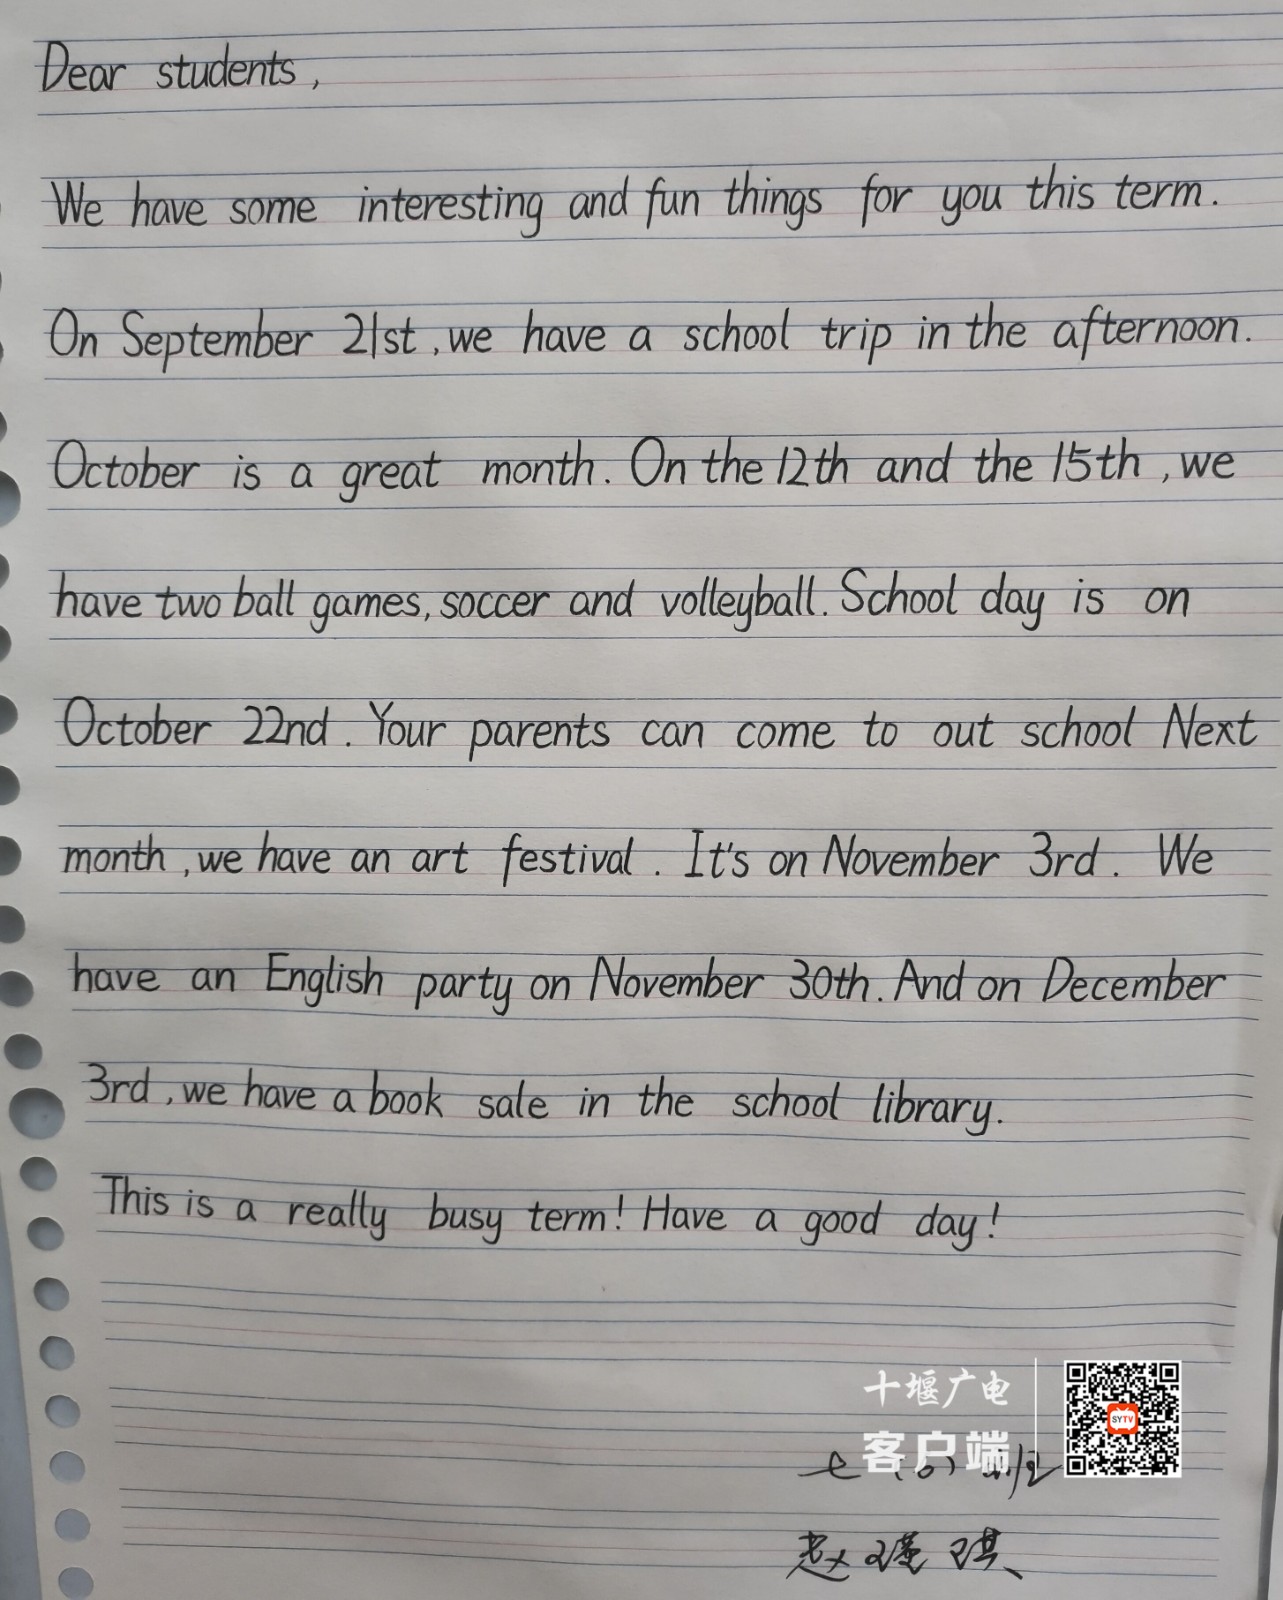 Dear students,
We have some interesting and fun things for you this term.
On September 21st, we have a school trip in the afternoon.
October is a great month. On the 12th and the 15th, we
have two ball games, soccer and volleyball. School day is on
October 22nd. Your parents can come to out school Next
month, we have an art festival. It's on November 3rd. We
have an English party on November 30th. And on December
3rd, we have a book sale in the school library.
This is a really busy term! Have a good day!
十堰广电
客户端
SYTV
七(6)
赵瑾琪